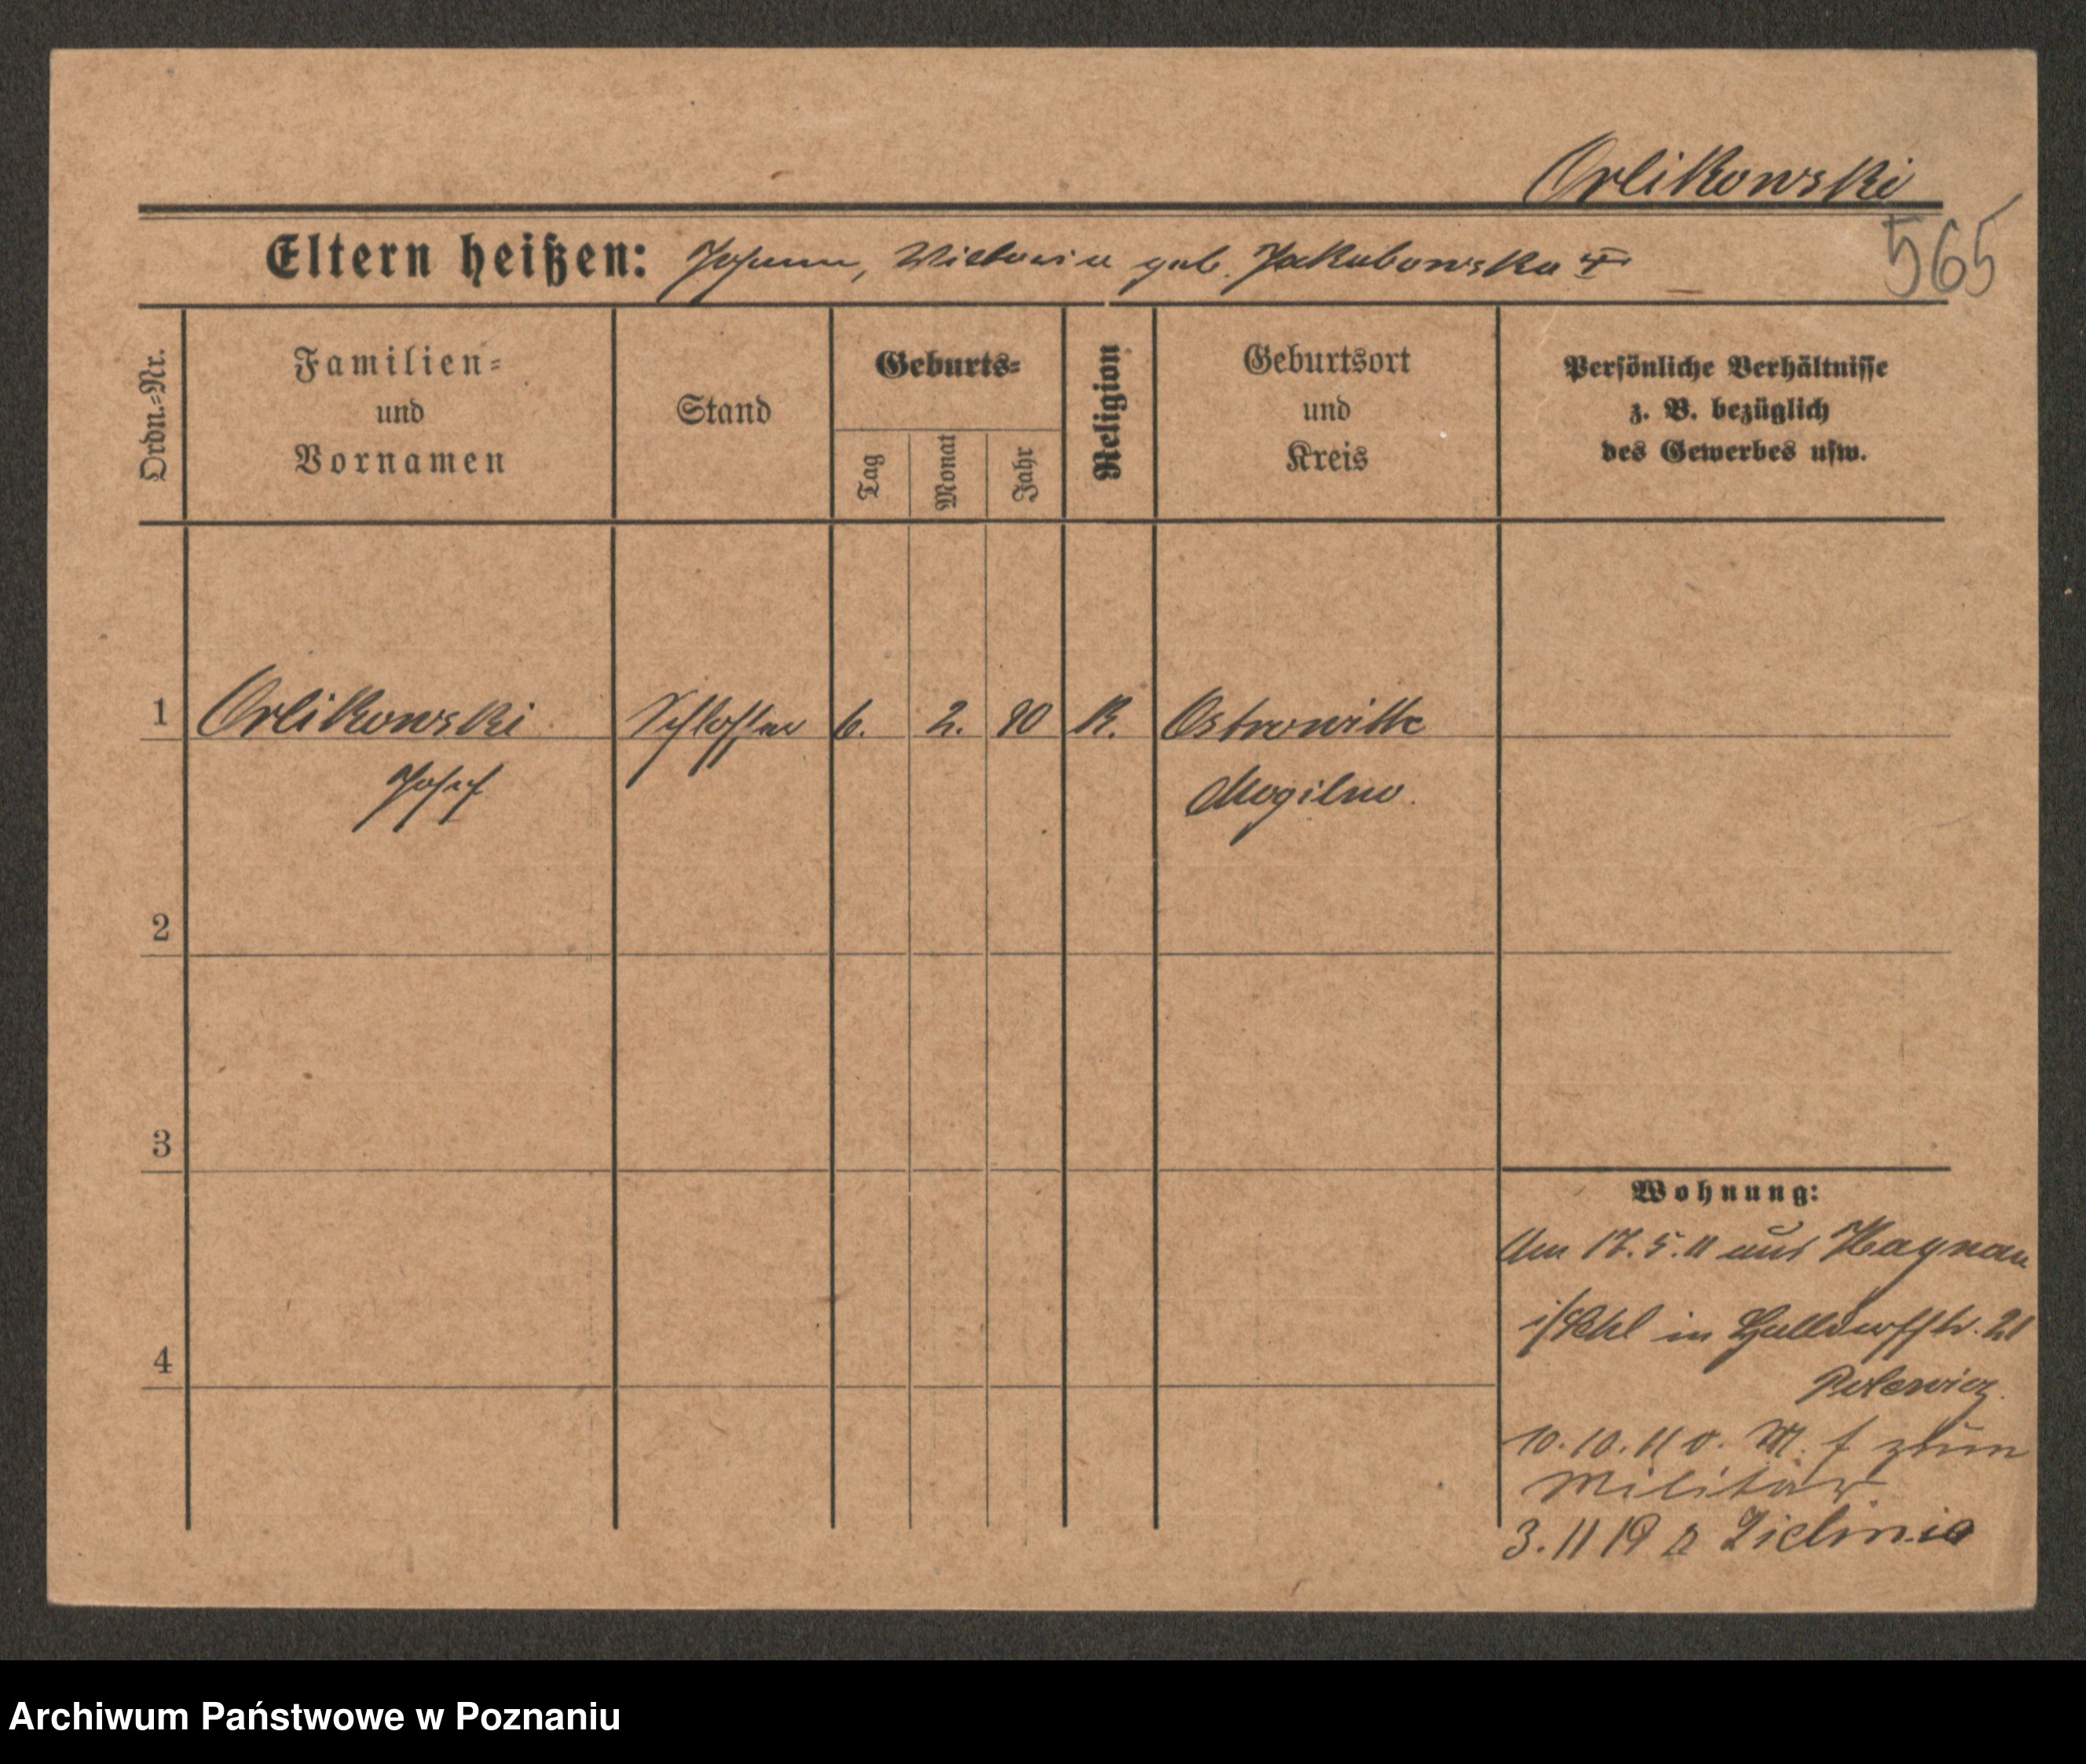 Orlikowski
565
Eltern heißen: Johann, Victoria geb. Jakubowska
Ordn.=Nr.
Familien=
und
Vornamen
Stand
Geburts=
Tag
Monat
Jahr
Religion
Geburtsort
und
Kreis
Persönliche Verhältnisse
z. B. bezüglich
des Gewerbes usw.
1 Orlikowski Schlosser 6. 2. 90 K. Ostrowitte
Josef Mogilno.
2
3
4
Wohnung:
Am 17.5.11 aus Hagnau
in str. 21
10.10.11 zum
Militär
3.11 19
Archiwum Państwowe w Poznaniu